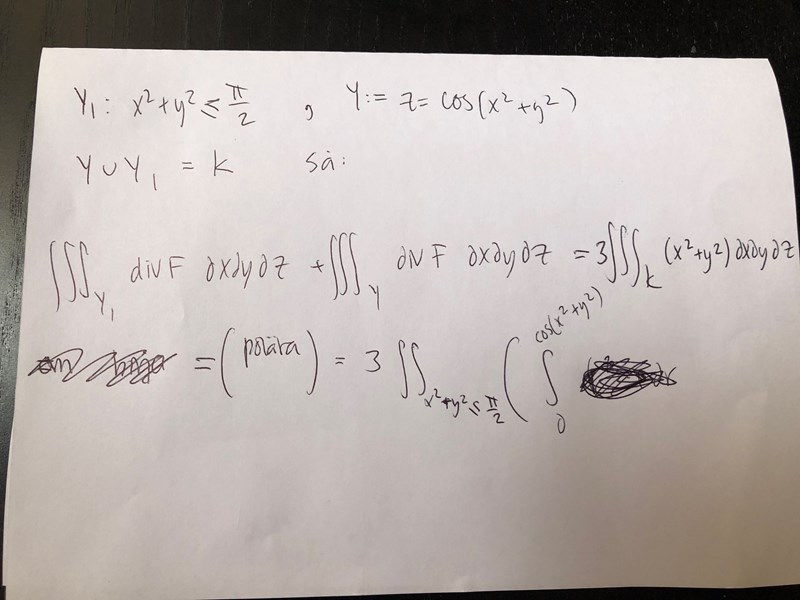 Y₁: x²+y² ≤ π/2 , Y:= z= cos(x²+y²)
Y ∪ Y₁ = K så:
∭_Y₁ div F ∂x∂y∂z + ∭_Y div F ∂x∂y∂z = 3∭_K (x²+y²) ∂x∂y∂z
= (polära) = 3 ∬_x²+y²≤π/2 ( ∫_0^cos(x²+y²)